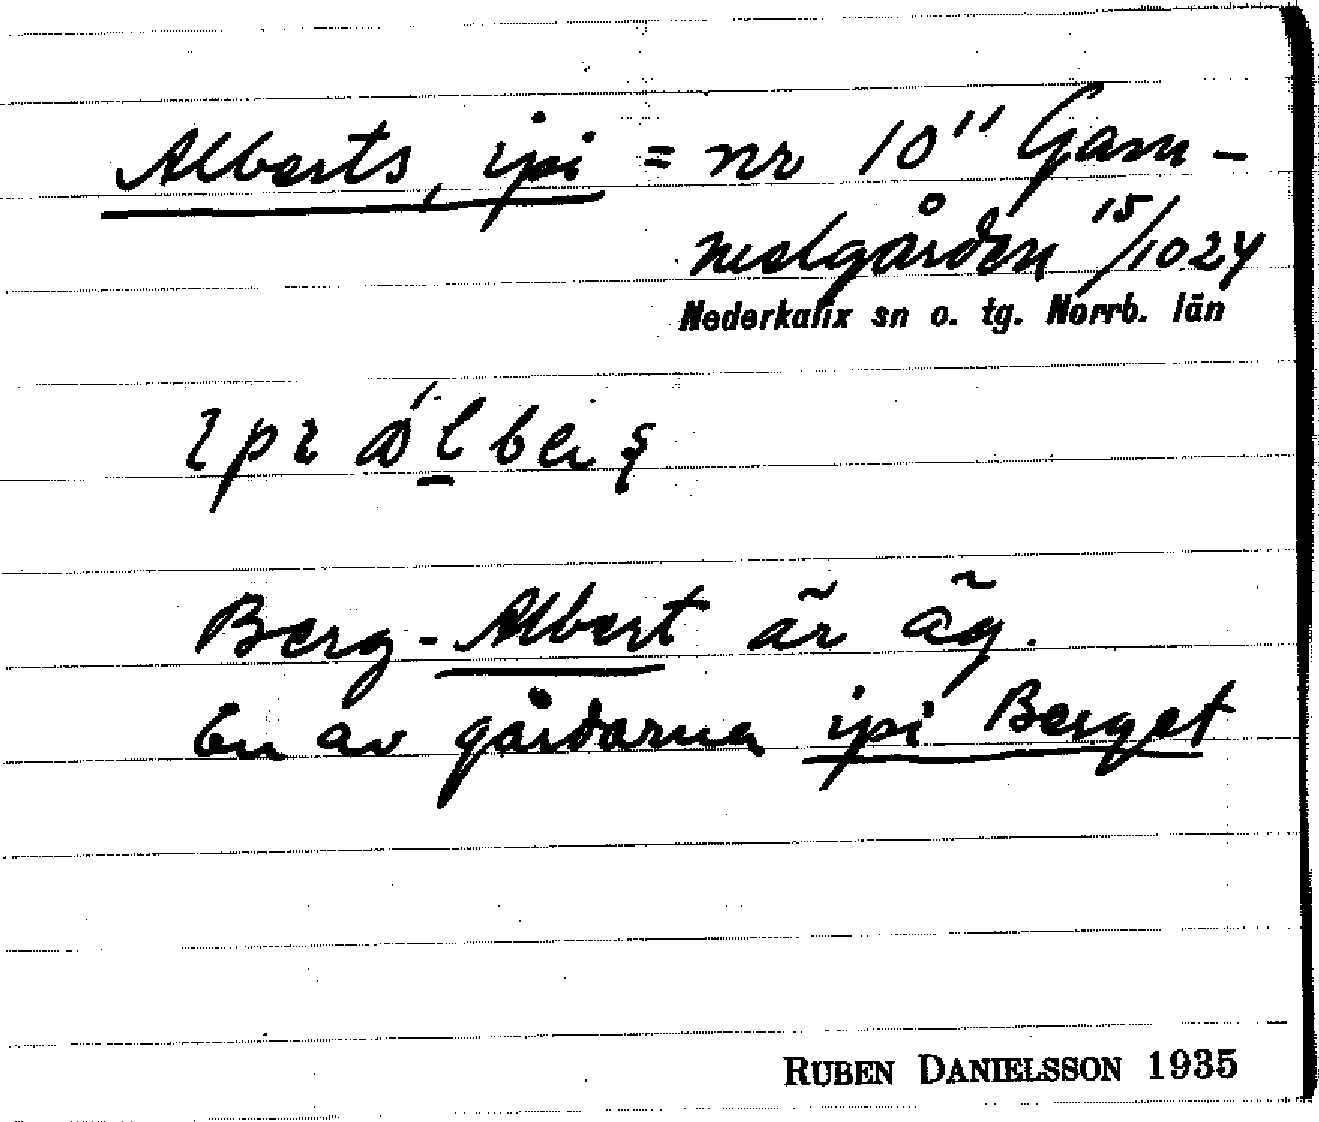 Alberts, ipi = nr 10¹¹ Gam-
melgården ¹⁵/1024
Nederkalix sn o. tg. Norrb. län
Berg-Albert är äg.
En av gårdarna ipi Berget
RUBEN DANIELSSON 1935